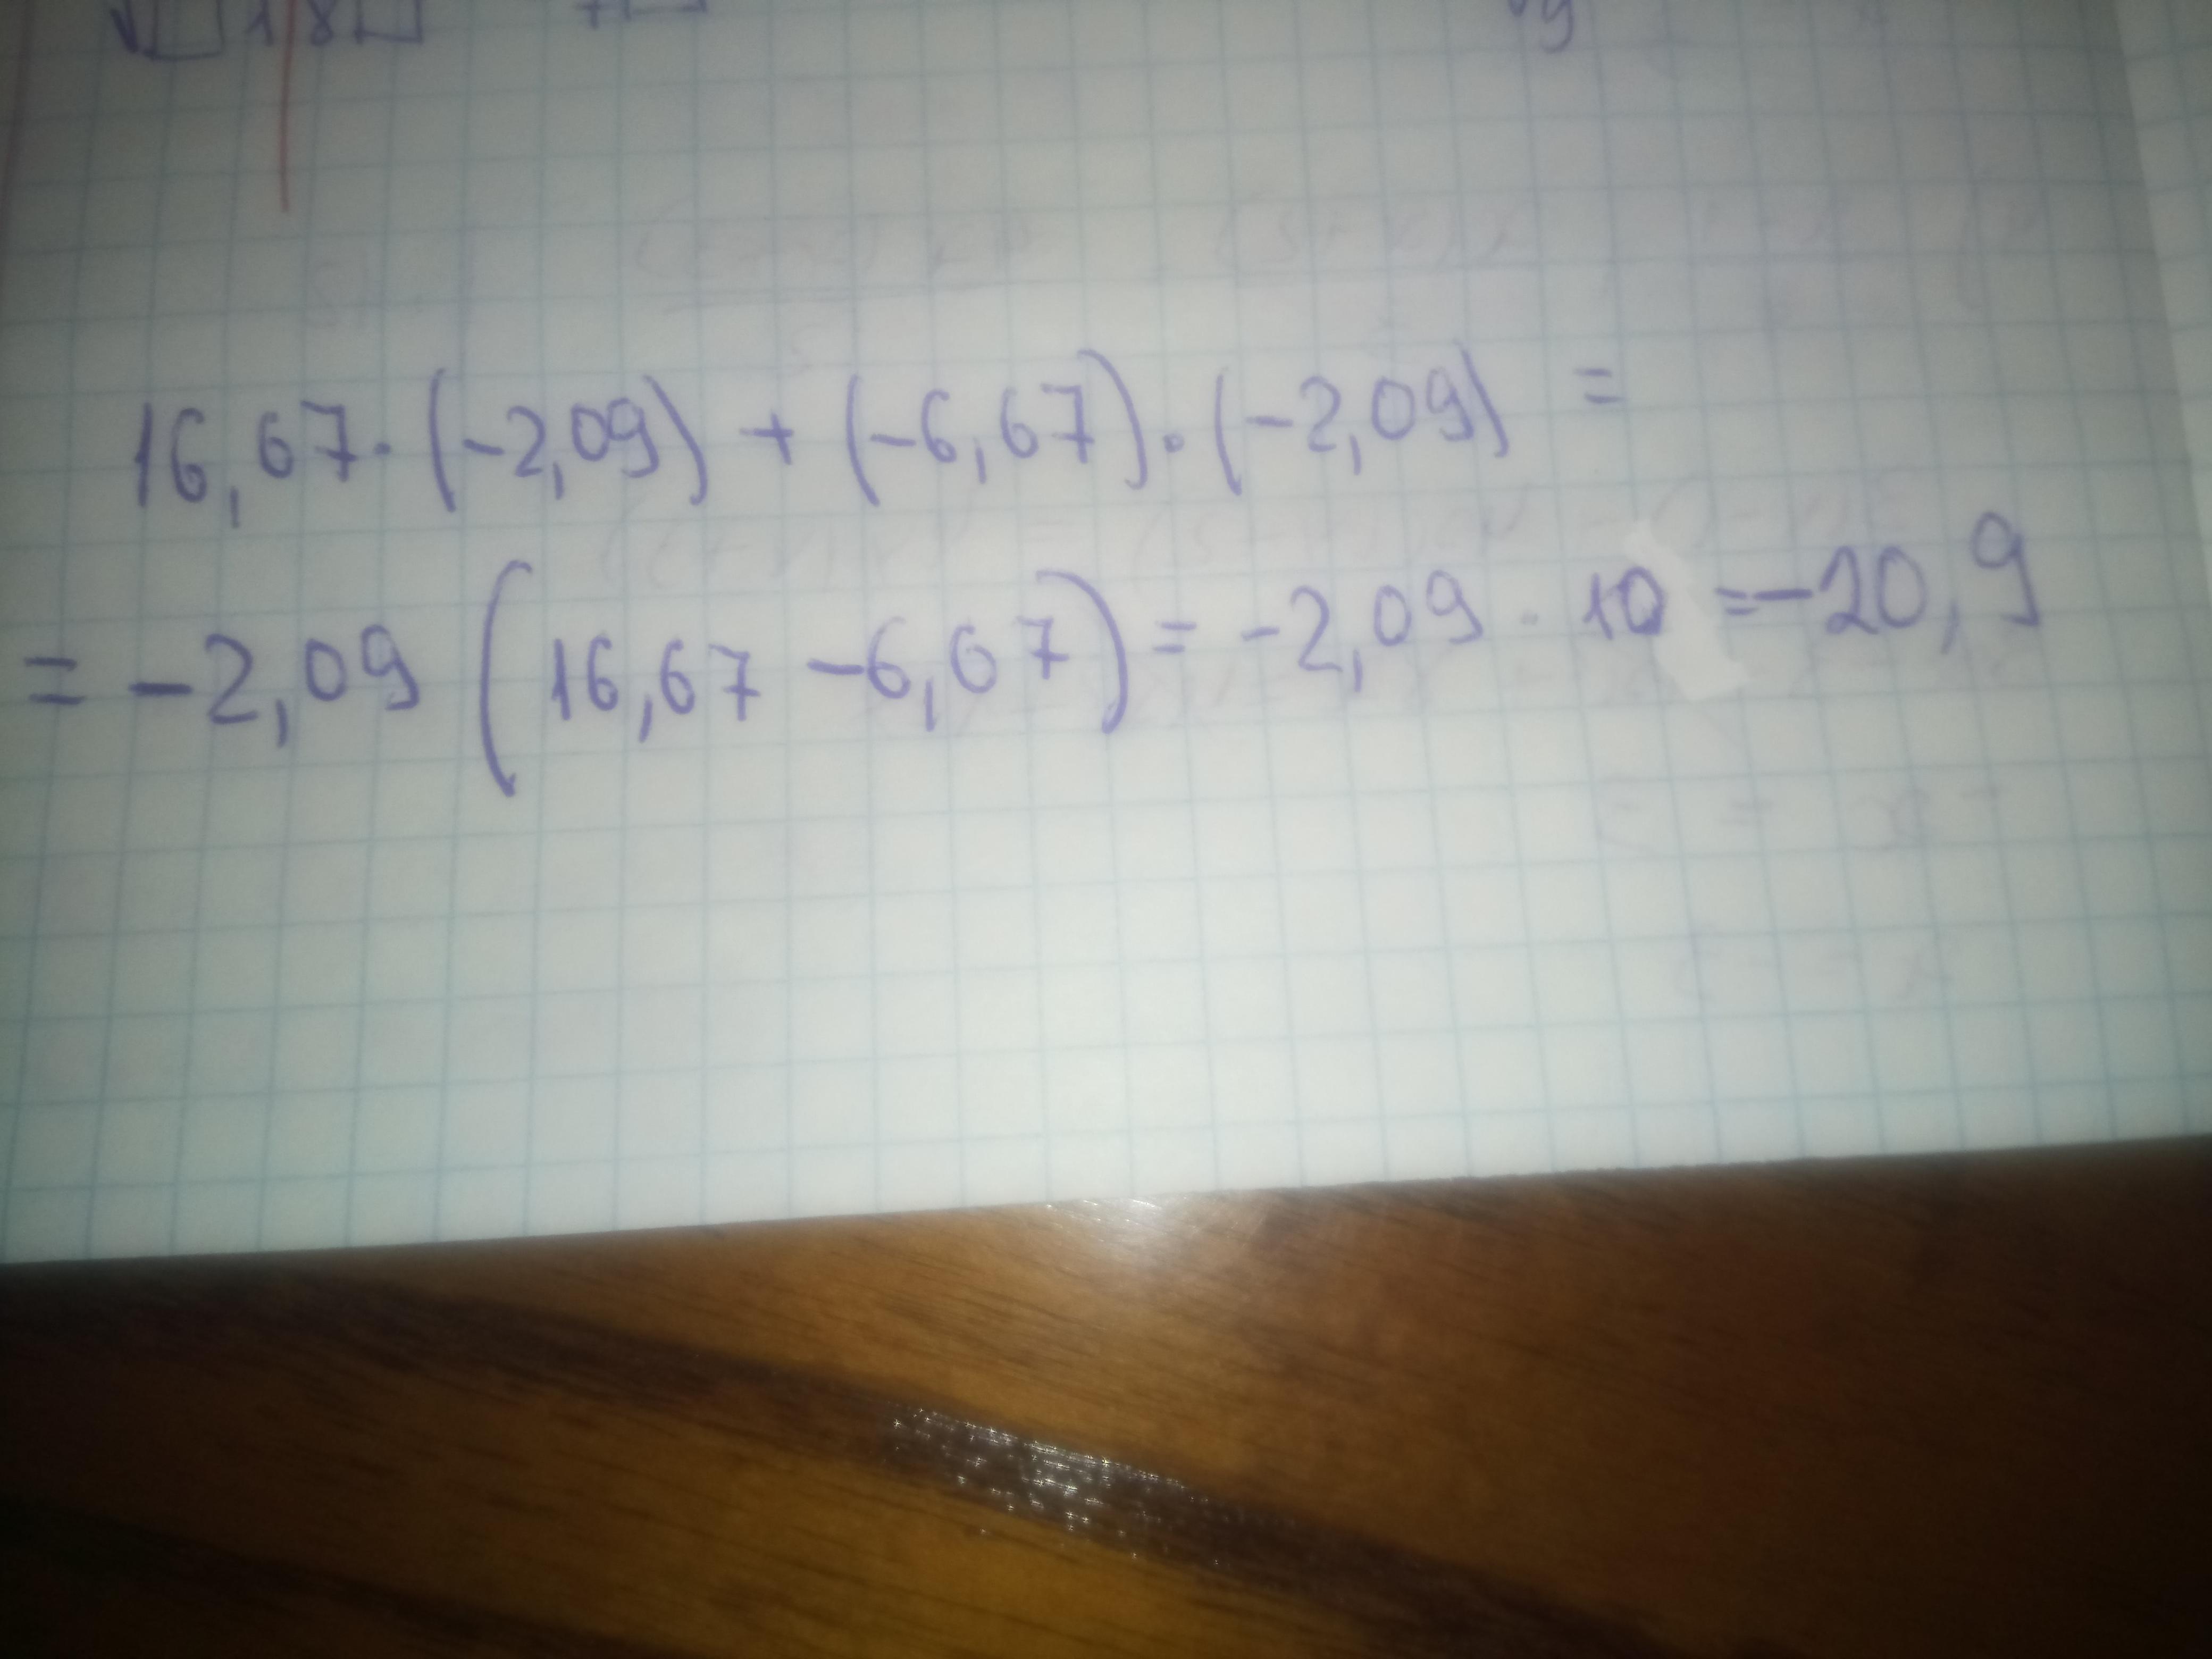 16,67 · (-2,09) + (-6,67) · (-2,09) =
= -2,09 (16,67 - 6,67) = -2,09 · 10 = -20,9